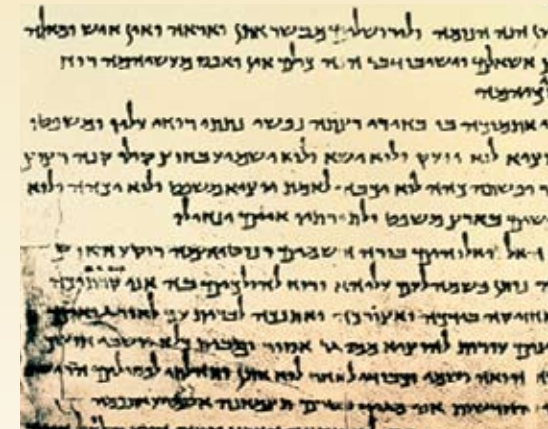 הנה הנומה ולירושלים מבשר אתן ואראה ואין איש ומאלה
אשאלם וישיבו דבר הנה כולם אין ואפס מעשיהמה רוח
אתמוכה בו בחירי רצתה נפשי נתתי רוחי עליו ומשפטו
יוציא לוא יזעק ולוא ישא ולוא ישמיע בחוץ קולו קנה רצוץ
ופשתה כהה לוא יכבה לאמת יוציא משפט ולוא יכהה ולוא
ישים בארץ משפט ולתורתיו איים ינחילו
האל האלוהים בורה השמים ונוטיהמה רוקע הארץ
נותן נשמה לעם עליהא ורוח להולכים בה אני קרתיכה
ואחזיקה בידכה ואצורכה ואתנכה לברית עם לאור גואים
עינים עורות להוציא ממסגר אסיר ומבית כלא יושבי חושך
הואה ושמי וכבודי לאחר לוא אתן ותהלתי לפסילים
וחדשות אני מגיד בטרם תצמחנה אשמיע אתכמה